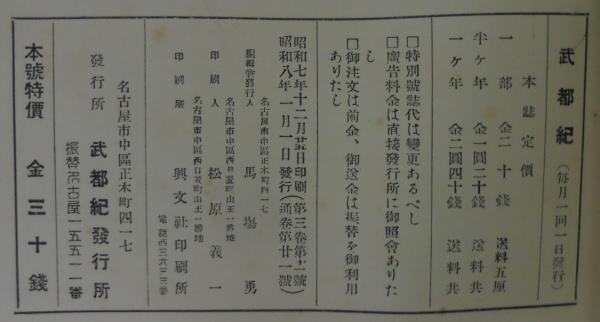 武都紀（每月一回一日發行）
本誌定價
一部 金二十錢 送料五厘
半ケ年 金一圓二十錢 送料共
一ケ年 金二圓四十錢 送料共
□特別號誌代は變更あるべし
□廣告料金は直接發行所に御照會ありた
し
□御注文は前金、御送金は振替を御利用
ありたし
昭和七年十二月廿五日印刷（第三卷第十二號）
昭和八年一月一日發行（通卷第廿一號）
名古屋市中區正木町四一七
編輯兼發行人 馬場勇
名古屋市中區西日置町山王一番地
印刷人 松原義一
名古屋市中區西日置町山王一番地
印刷所 興文社印刷所
電話西三六三三番
名古屋市中區正木町四一七
發行所 武都紀發行所
振替名古屋一五五一一番
本號特價 金三十錢